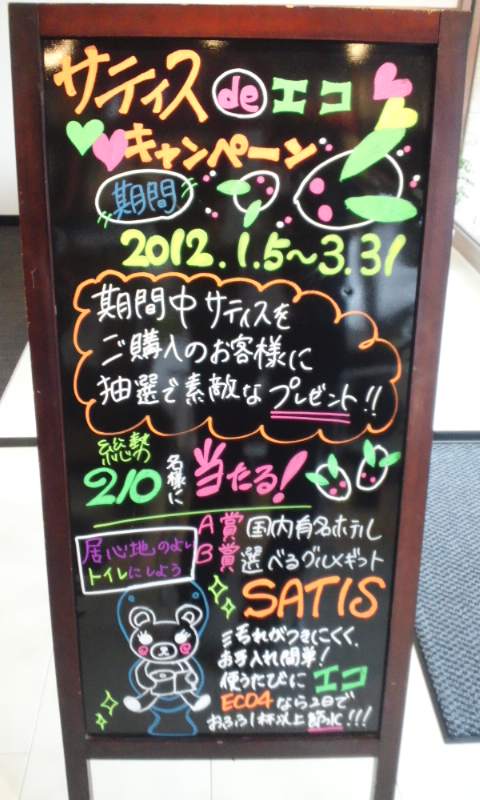 サティス de エコ
キャンペーン
期間
2012.1.5～3.31
期間中サティスを
ご購入のお客様に
抽選で素敵なプレゼント!!
総勢
210名様に当たる!
A賞 国内有名ホテル
B賞 選べるグルメギフト
居心地のよい
トイレにしよう
SATIS
汚れがつきにくく、
お手入れ簡単!
使うたびにエコ
ECO4なら2日で
おふろ1杯以上節水!!!